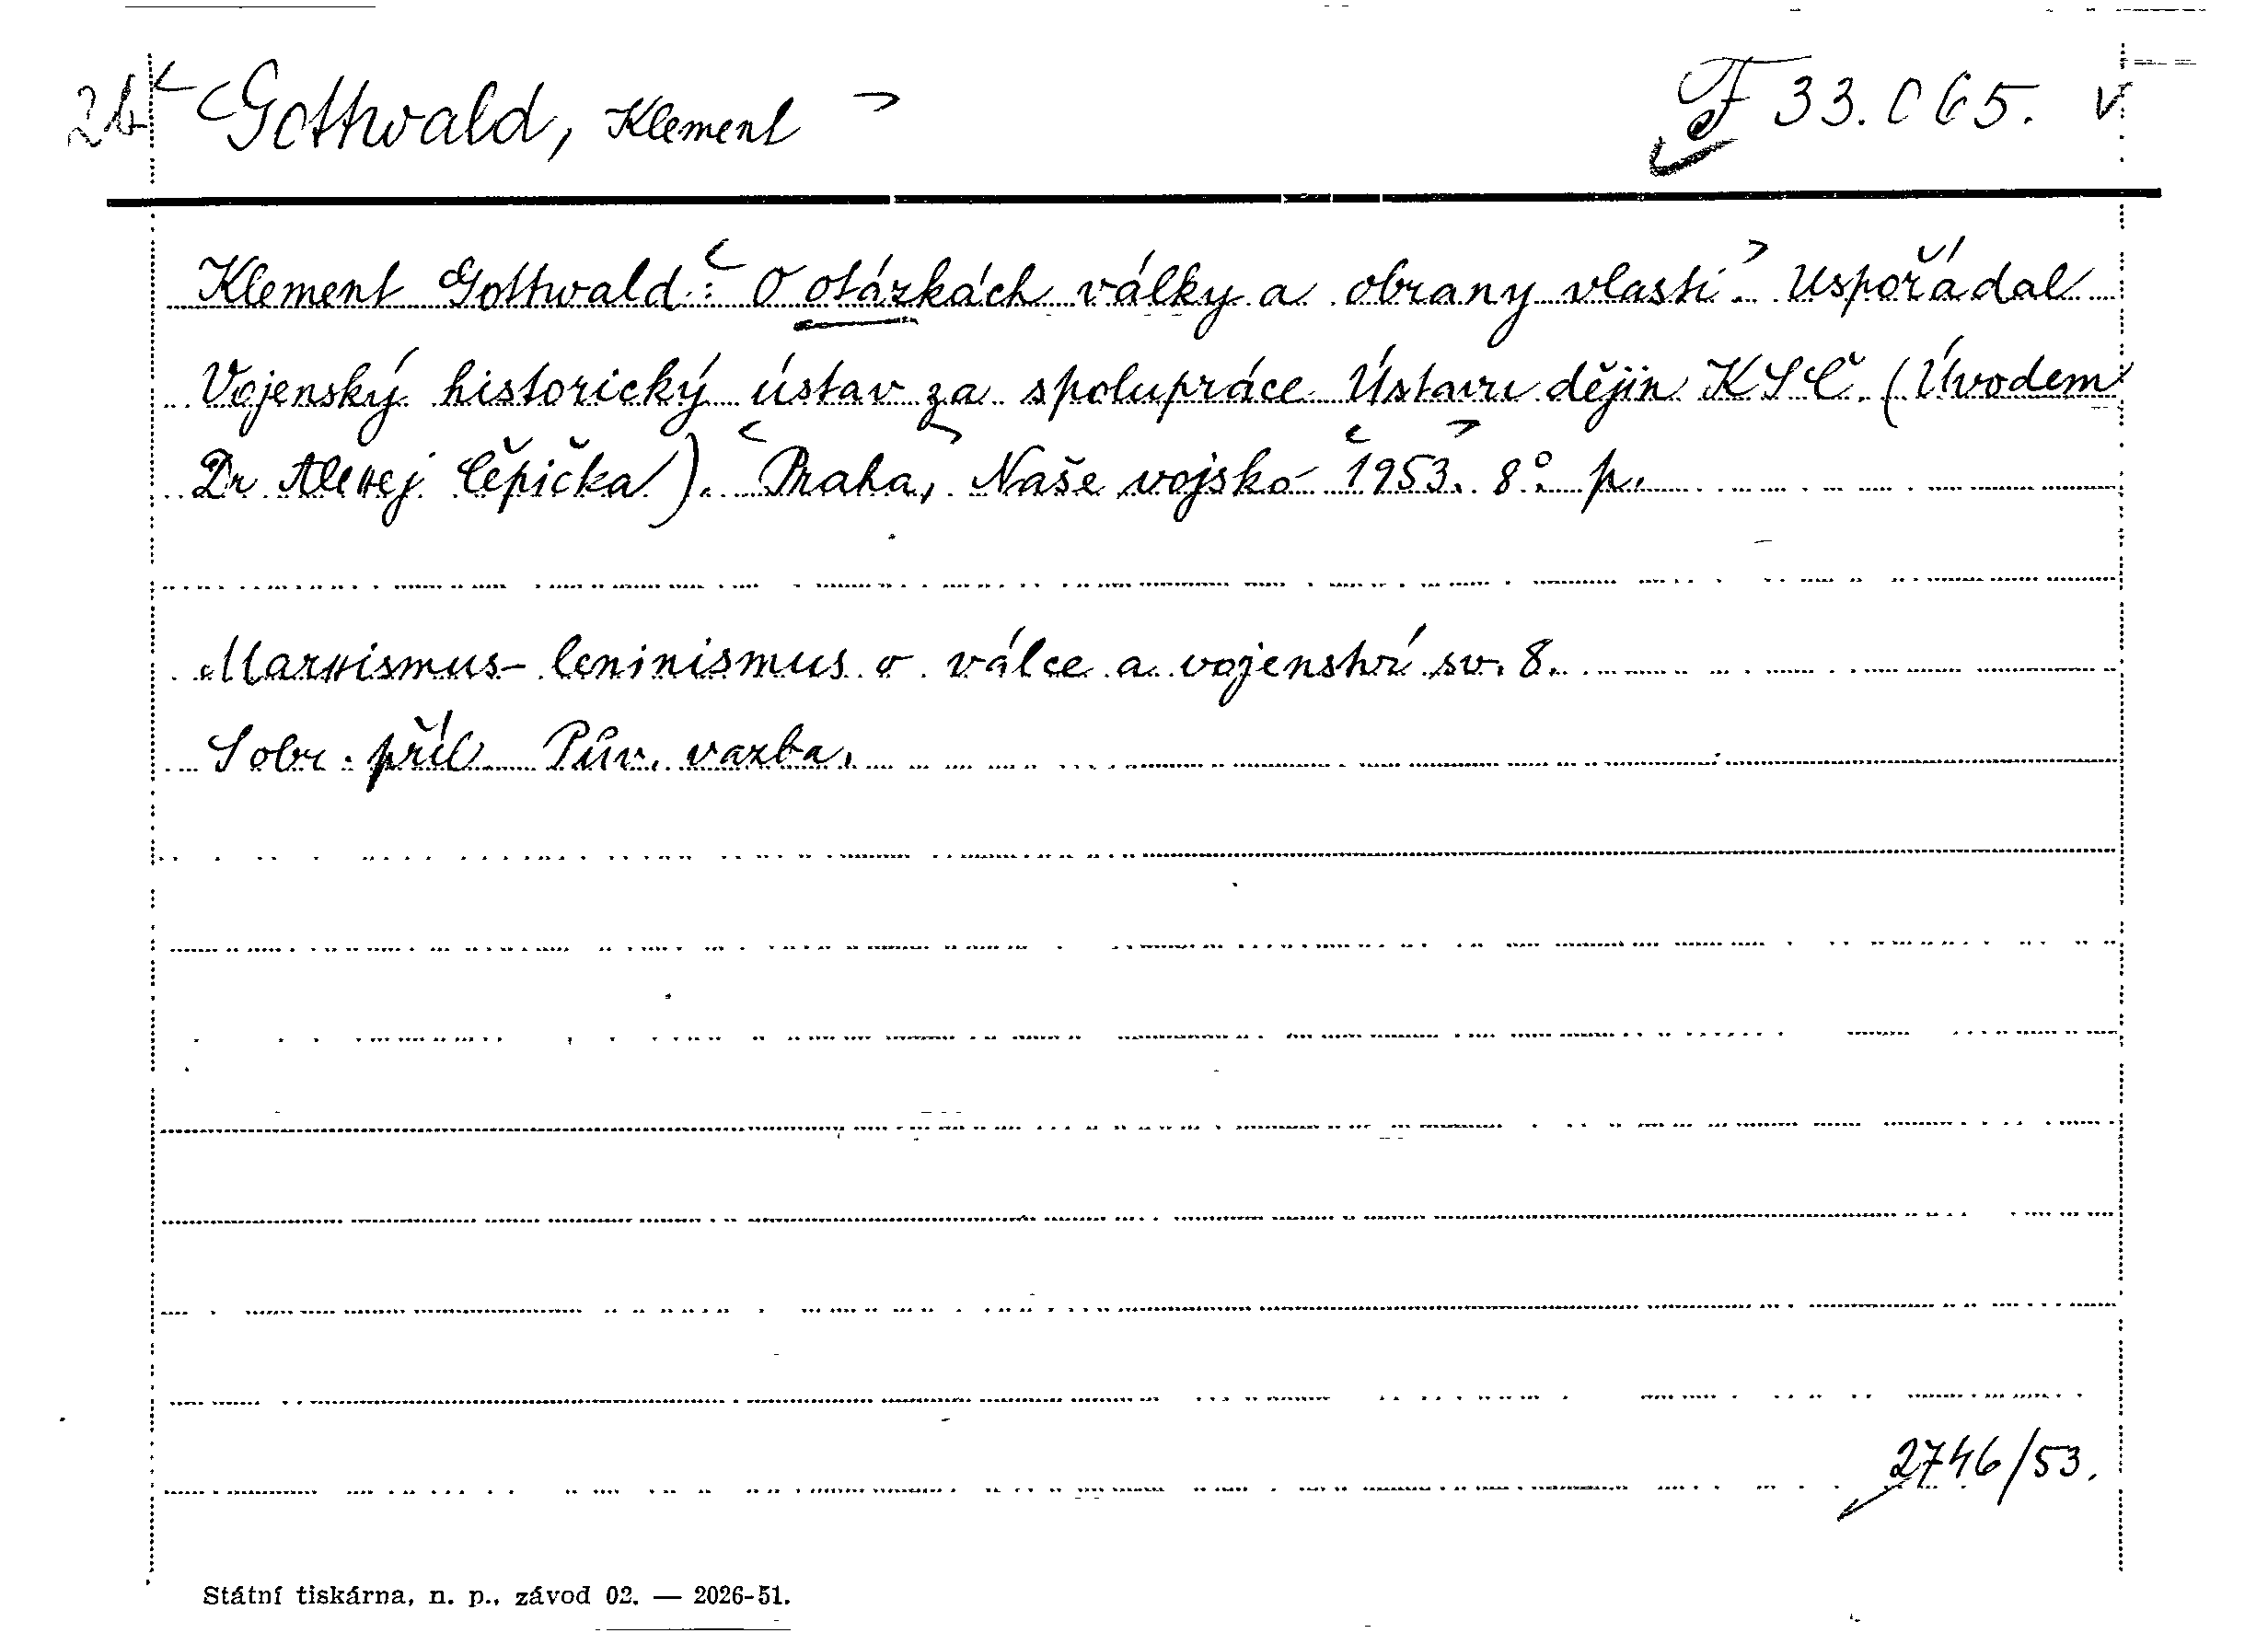 2b Gottwald, Klement F 33.065. v
Klement Gottwald: O otázkách války a obrany vlasti. Uspořádal
Vojenský historický ústav za spolupráce Ústavu dějin KSČ. (Úvodem
Dr Alexej Čepička). Praha, Naše vojsko 1953. 8°. p.
Marxismus-leninismus o válce a vojenství sv. 8.
Sobr. příl. Pův. vazba.
2746/53.
Státní tiskárna, n. p., závod 02. — 2026-51.